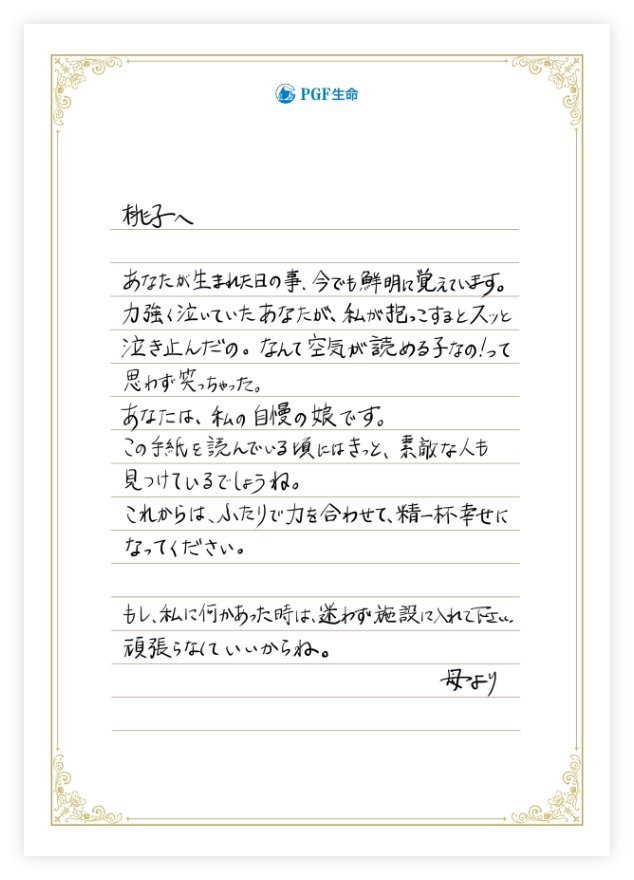 PGF生命
桃子へ
あなたが生まれた日の事、今でも鮮明に覚えています。
力強く泣いていたあなたが、私が抱っこするとスッと
泣き止んだの。なんて空気が読める子なの！って
思わず笑っちゃった。
あなたは、私の自慢の娘です。
この手紙を読んでいる頃にはきっと、素敵な人も
見つけているでしょうね。
これからは、ふたりで力を合わせて、精一杯幸せに
なってください。
もし、私に何かあった時は、迷わず施設に入れて下さい。
頑張らなくていいからね。
母より